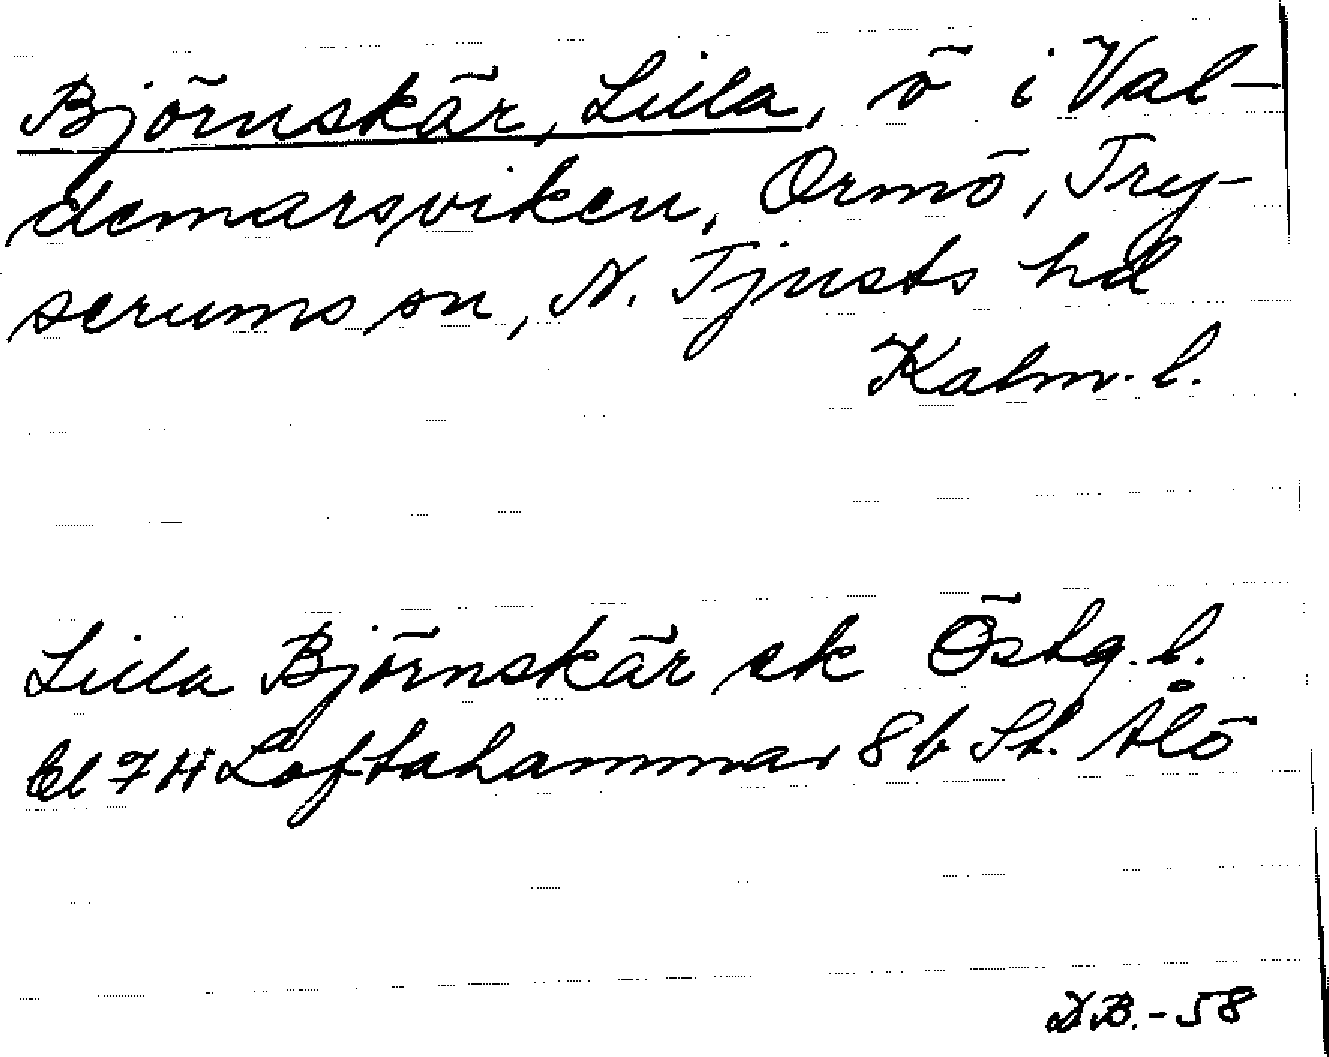 Björnskär, Lilla, ö i Val-
demarsviken, Ormö, Try-
serums sn, N. Tjusts hd
Kalm. l.
Lilla Björnskär ek Östg. l.
bl 74 Loftahammar 8b St. Ålö
D.B. - 58